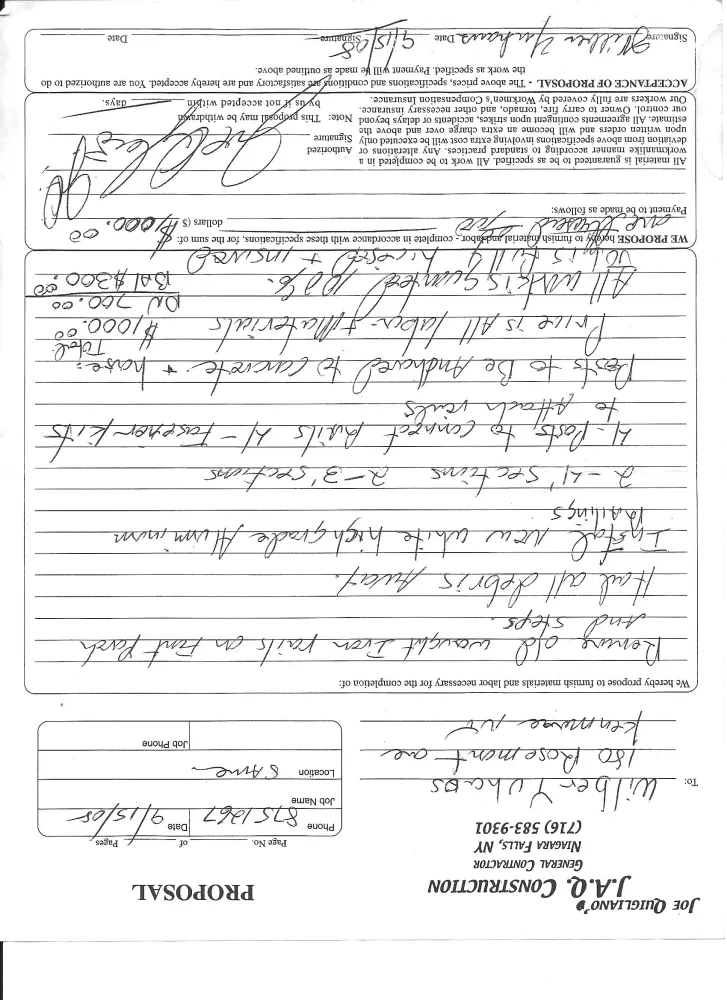 JOE QUIGLIANO'S
J.A.Q. CONSTRUCTION
GENERAL CONTRACTOR
NIAGARA FALLS, NY
(716) 583-9301
PROPOSAL
Page No. of Pages
Phone 875 1267 Date 9/15/08
Job Name
Location Same
Job Phone
To: Wilber Yuhaos
180 Rosemont ave
Kenmore NY
We hereby propose to furnish materials and labor necessary for the completion of:
Remove old wrought Iron rails on Front Porch
And steps.
Haul all debris Away.
Instal New white high grade Aluminum
RAilings
2-4' sections 2-3' sections
4-Posts to connect Rails 4-Fasener kits
to Attach rails
Posts to Be Anchored to Concrete + house:
Total
Price is All labor + Materials $1000.00
DN 700.00
All work is Guranteed 100%. BAl $300.00
JQ is Fully licensed + Insured
WE PROPOSE hereby to furnish material and labor - complete in accordance with these specifications, for the sum of:
one thousand dollars ($ 1,000.00
Payment to be made as follows:
All material is guaranteed to be as specified. All work to be completed in a
workmanlike manner according to standard practices. Any alterations or
deviation from above specifications involving extra cost will be executed only
upon written orders and will become an extra charge over and above the
estimate. All agreements contingent upon strikes, accidents or delays beyond
our control. Owner to carry fire, tornado, and other necessary insurance.
Our workers are fully covered by Workmen's Compensation Insurance.
Authorized
Signature
Note: This proposal may be withdrawn
by us if not accepted within days.
ACCEPTANCE OF PROPOSAL - The above prices, specifications and conditions are satisfactory and are hereby accepted. You are authorized to do
the work as specified. Payment will be made as outlined above.
Signature Wilber Yuhaus Date 9/15/08 Signature Date